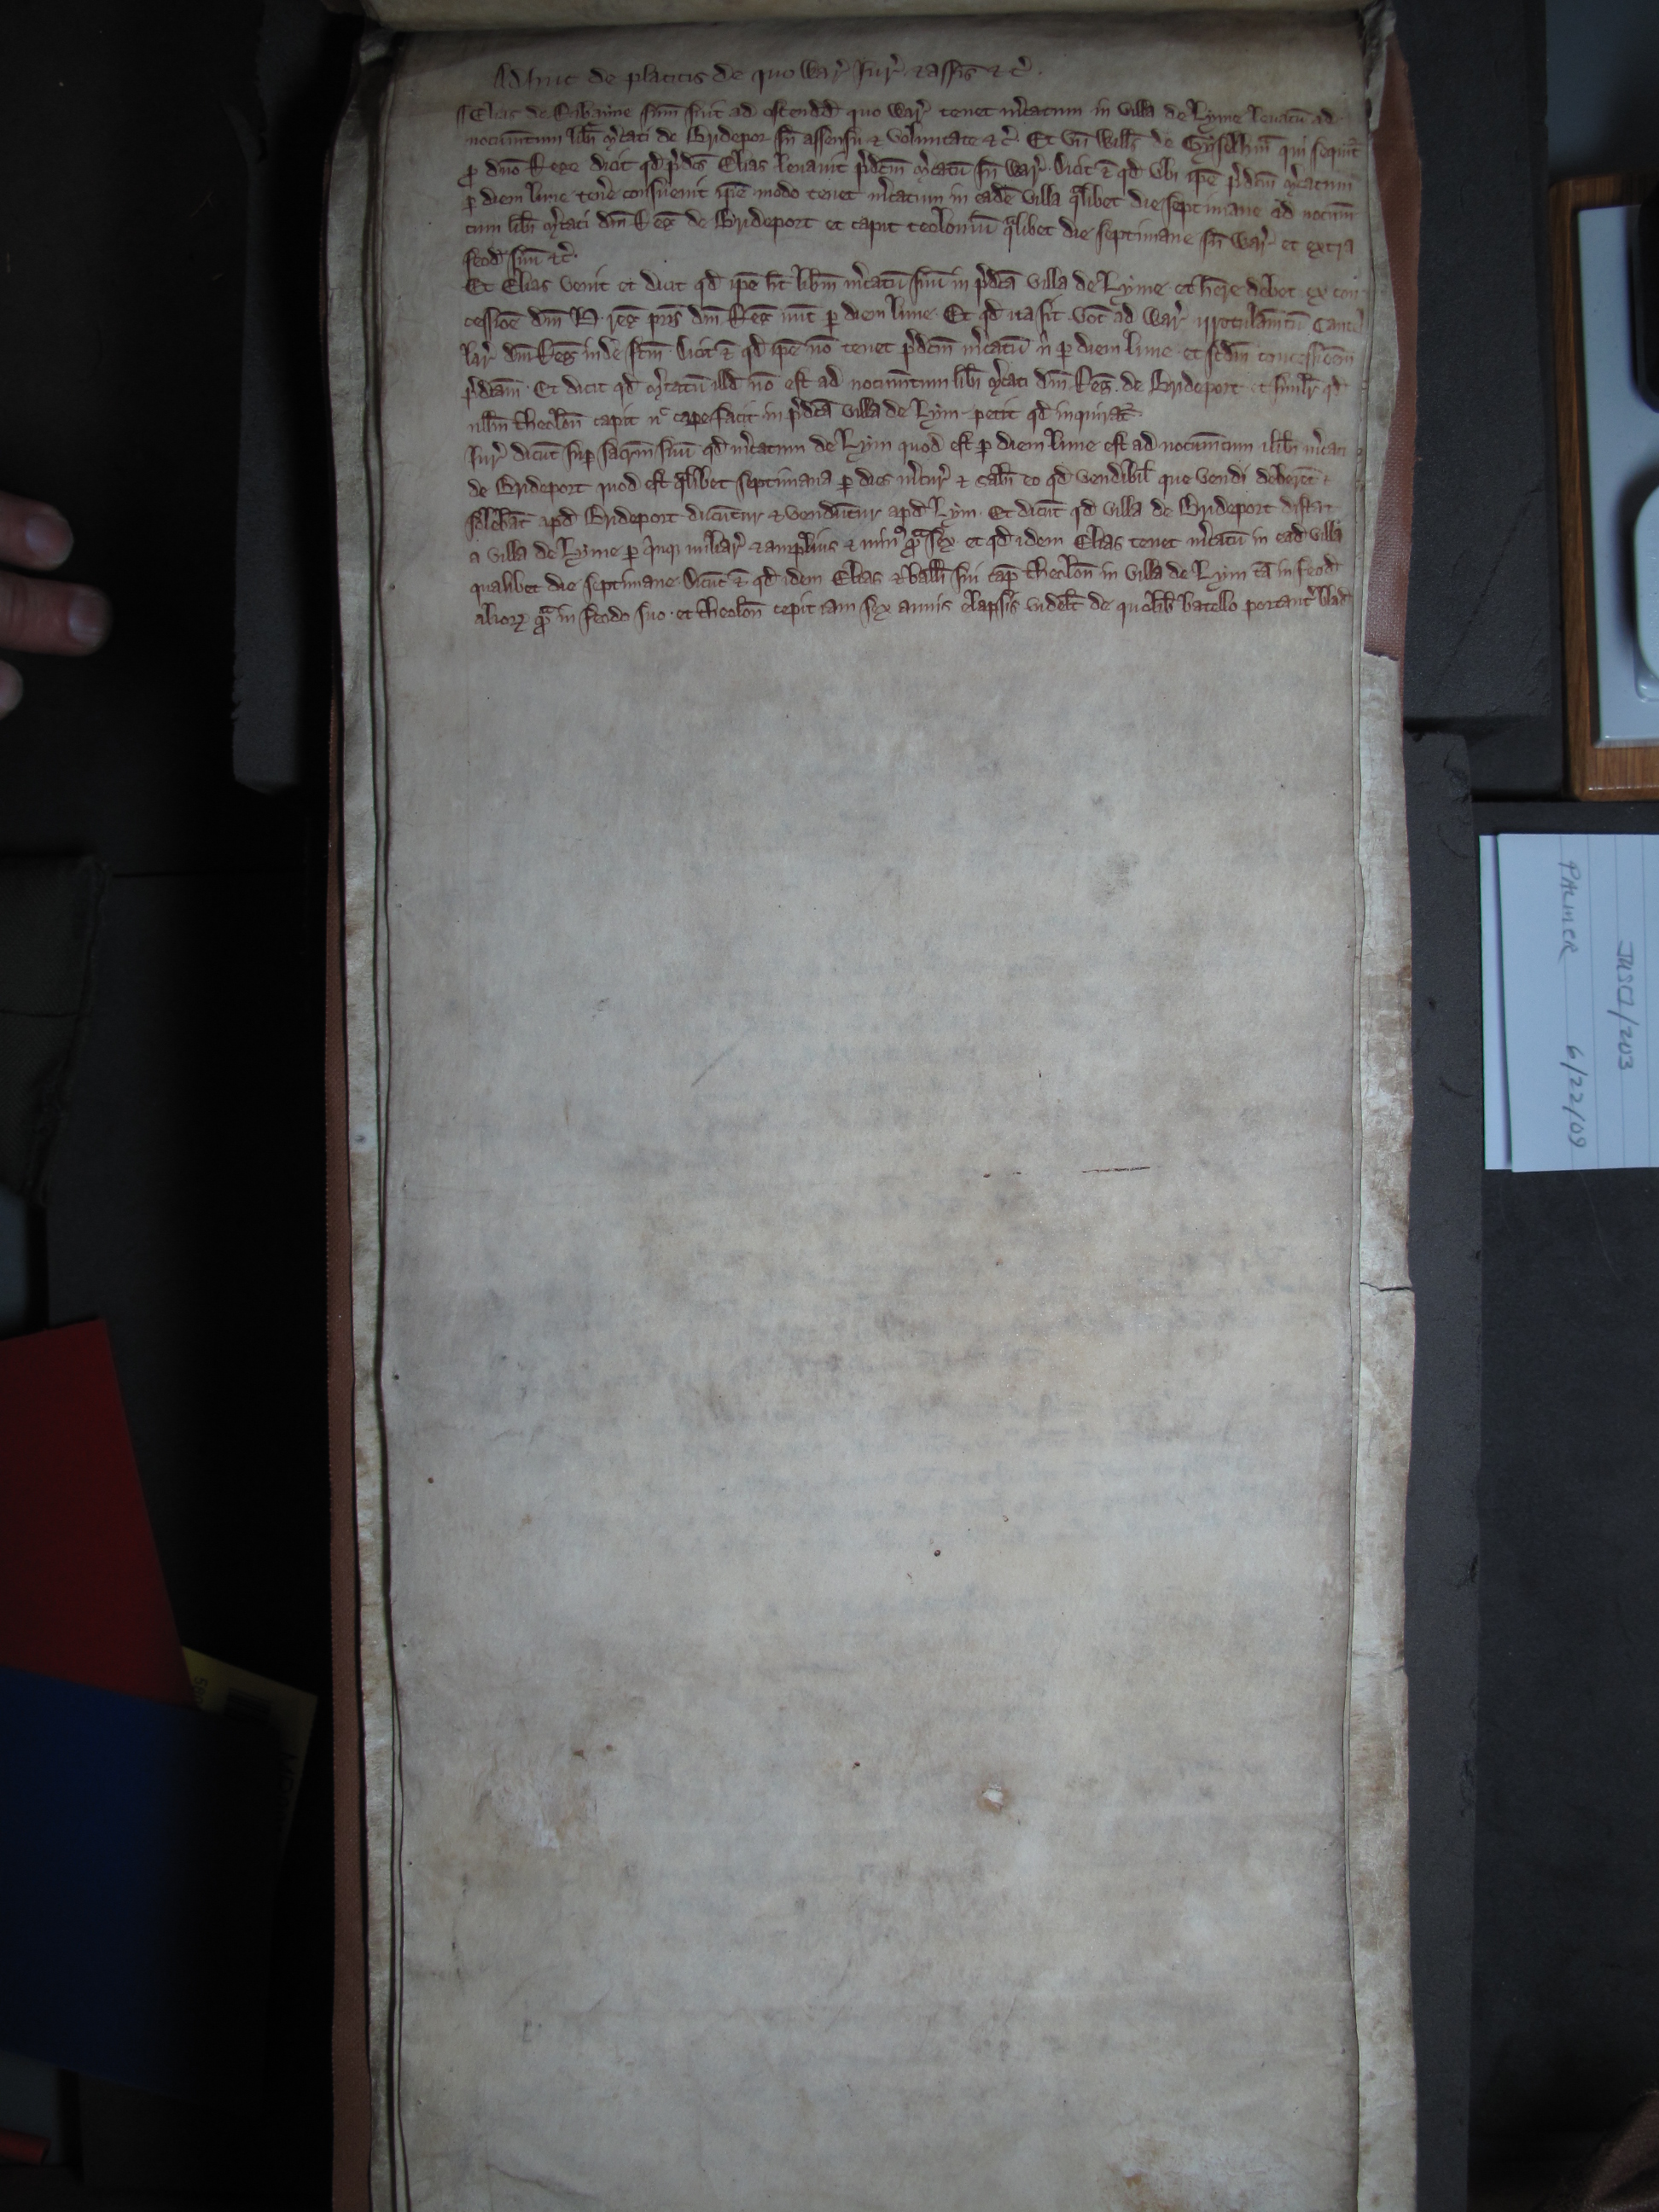 Adhuc de placitis de quo War̃ Jur̃ & assis̃ & c̃.
Elias de Rabayne sum̃ fuit ad ostendd̃ quo War̃ tenet m̃catum in villa de Lyme leuatũ ad
nocum̃tum lib̃i m̃cati de Bridepor sñ assensu & voluntate & c̃. Et vñ Will̃s de Gyselhm̃ qui sequit̃
p̱ dño Rege dicit qd̃ p̃dc̃s Elias leuauit p̃dc̃m m̃catũ sñ War̃. Dicit ẽ qd̃ vbi ip̃e p̃dc̃m m̃catum
p̱ diem lune ten̾e consueuit ip̃e modo tenet m̃catum in eadẽ villa q̃libet die septimane ad nocum̃
tum lib̃i m̃cati dñi Reg̃ de Brideport et capit teoloniũ q̃libet die septimane sñ War̃ et extra
feod̃ suũ &c̃.
Et Elias venit et dicit qd̃ ip̃e h̃t lib̃m m̃catũ suũ in p̃dc̃a villa de Lyme et h̃ere debet ex con
cessiõe dñi H. reg̃ p̃ris dñi Reg̃ nũc p̱ diem lune. Et qd̃ ita sit voc̃ ad War̃ irrotulam̃tũ Cancel
lar̃ dñi Reg̃ inde fc̃m. Dicit ẽ qd̃ ip̃e nõ tenet p̃dc̃m m̃catũ ñ p̱ diem lune et scd̃m concessiõem
p̃dc̃am. Et dicit qd̃ m̃catũ illd̃ nõ est ad nocum̃tum lib̃i m̃cati dñi Reg̃ de Brideport et simil̃r qd̃
nllm̃ theoloñ capit nc̃ cape facit in p̃dc̃a villa de Lym petit qd̃ inquirat̃.
Jur̃ dicũt sup̱ sacr̃m suũ qd̃ m̃catum de Lym quod est p̱ diem lune est ad nocum̃tum lib̃i m̃cati
de Brideport quod est q̃libet septimana p̱ dies m̃cur̃ & sabb̃i eo qd̃ vendibil̃ que vendi deberẽt &
solebãt apd̃ Brideport ducũtur & vendũtur apd̃ Lym. Et dicũt qd̃ villa de Brideport distat
a villa de Lyme p̱ q̃nq̃ miliar̃ & amplius & min᷒ q̃ sex et qd̃ idem Elias tenet m̃catũ in ead̃ villa
qualibet die septimane. Dicũt ẽ qd̃ idem Elias & ball̃i sui cap̃ theoloñ in villa de Lym tã in feod̃
alioꝝ q̃ in feodo suo et theoloñ cepit iam sex annis elapsis videl̃t de quolib̃ batello portant̃ blad̃
PALMER 6/22/09
JUST1/203